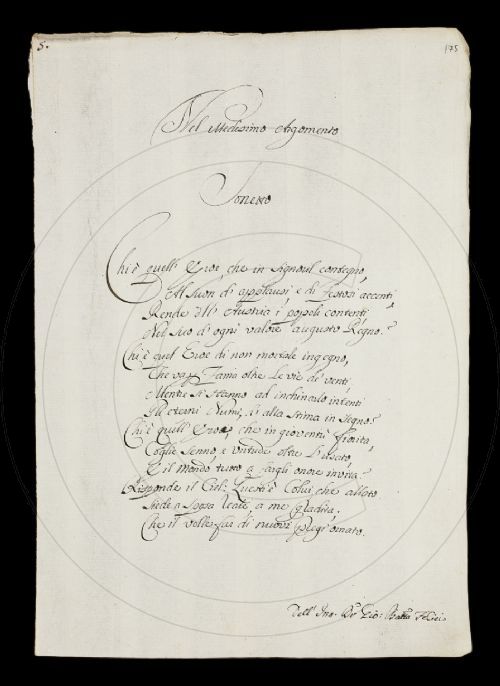 5.
175
Nel Medesimo Argomento
Sonetto
Chi è quell' Eroe, che in signoril contegno,
Al suon di applausi, e di festosi accenti,
Rende dell' Austria i popoli contenti
Nel sico d' ogni valore augusto Regno?
Chi è quel' Eroe di non mortale ingegno,
Che va Fama oltre le vie de' venti,
Mentre si stanno ad inchinarlo intenti
Gli eterni Numi, si alla stima in segno?
Chi è quell' Eroe, che in gioventù fiorita,
Coglie senno, e virtude oltre l' usato,
E il Mondo tutto a fargli onore invita?
Risponde il Ciel: Questi è Colui, che allato
Siede a Sposa leale, a me gradita,
Che il volle far di nuovi pregi ornato.
Dell' Gio: Batta Felici